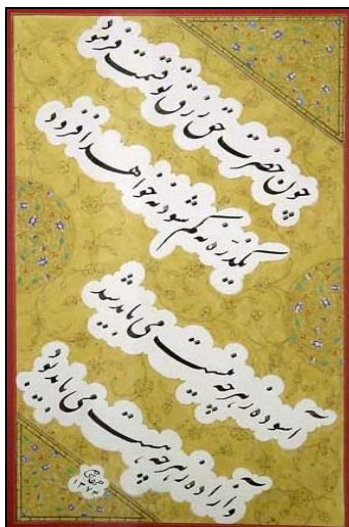 چون حضرت حق رزق تو قسمت فرمود
یکذره نه کم شود نه خواهد افزود
آسوده ز هر چه نیست می باید شد
وآزاده ز هر چه هست می باید بود
۱۳۷۳